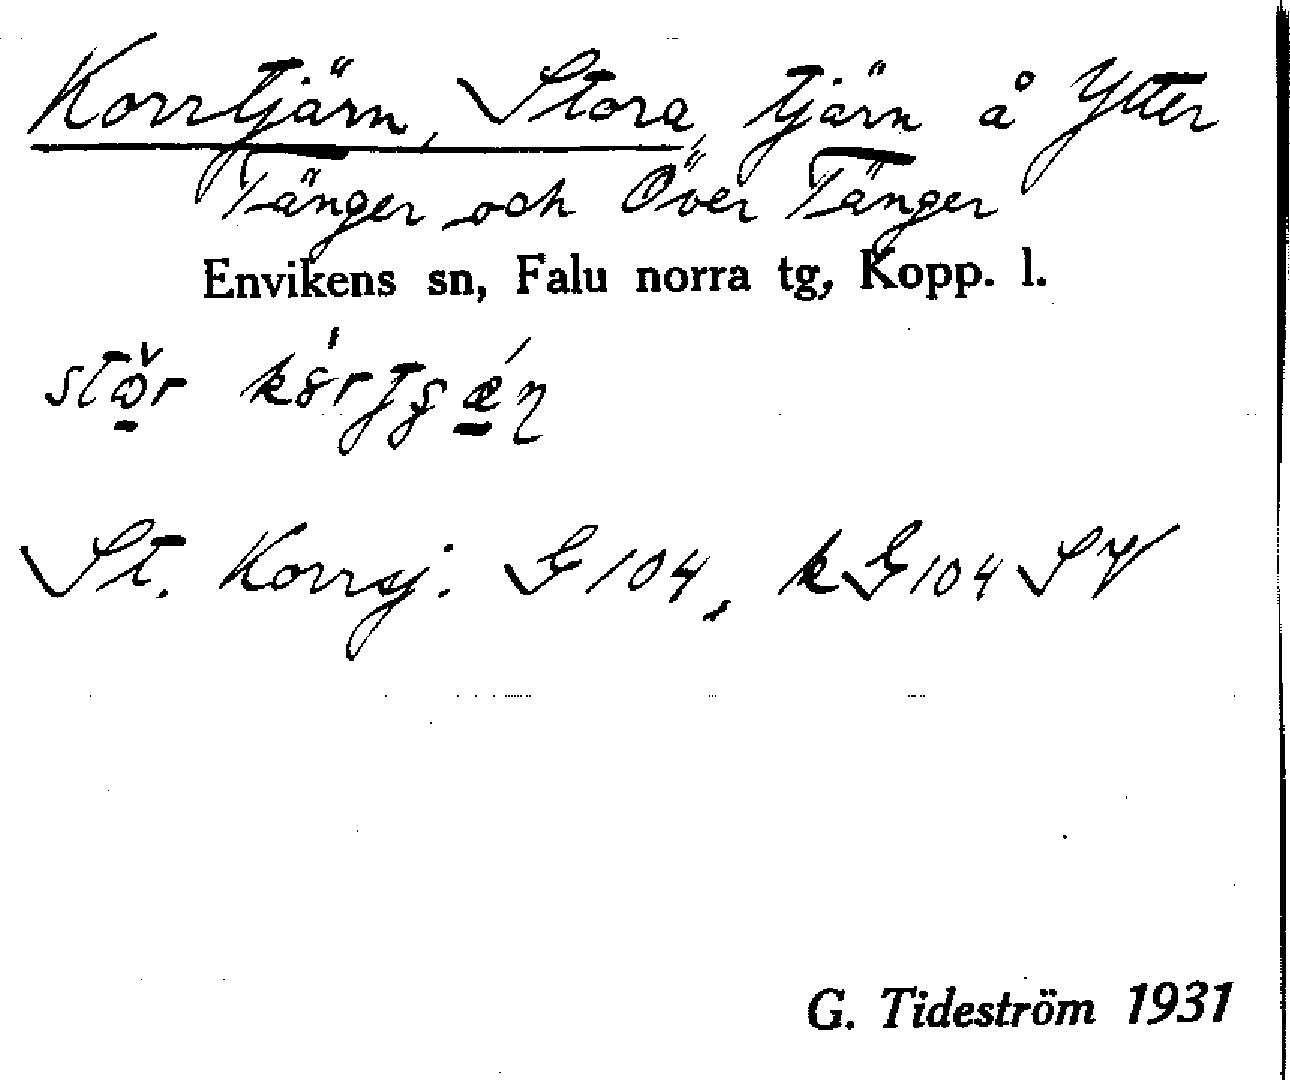 Korrtjärn, Stora, tjärn å Ytter
Tänger och Över Tänger
Envikens sn, Falu norra tg, Kopp. l.
St. Korrsj. G 104, kG 104 SV
G. Tideström 1931